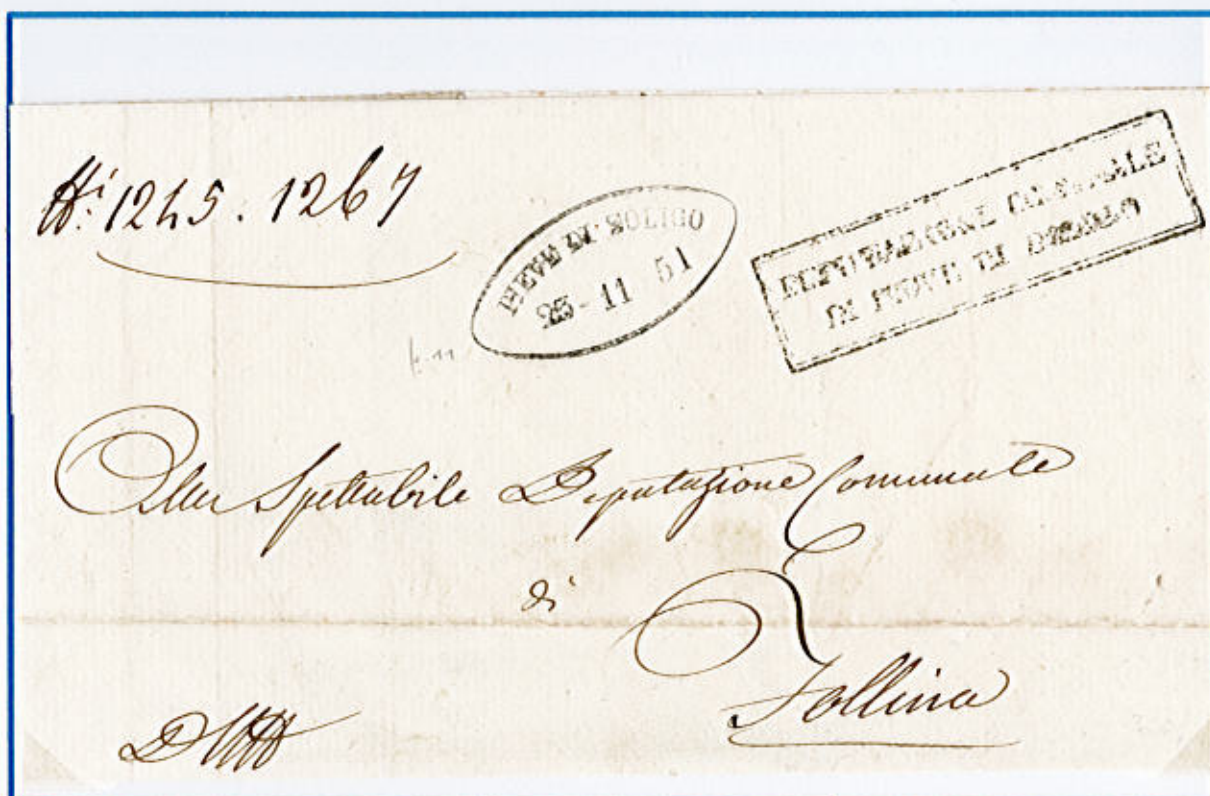 N.i 1245. 1267
PIEVE DI SOLIGO
23-11 51
DEPUTAZIONE COMUNALE
DI PIEVE DI SOLIGO
Alla Spettabile Deputazione Comunale
di
Follina